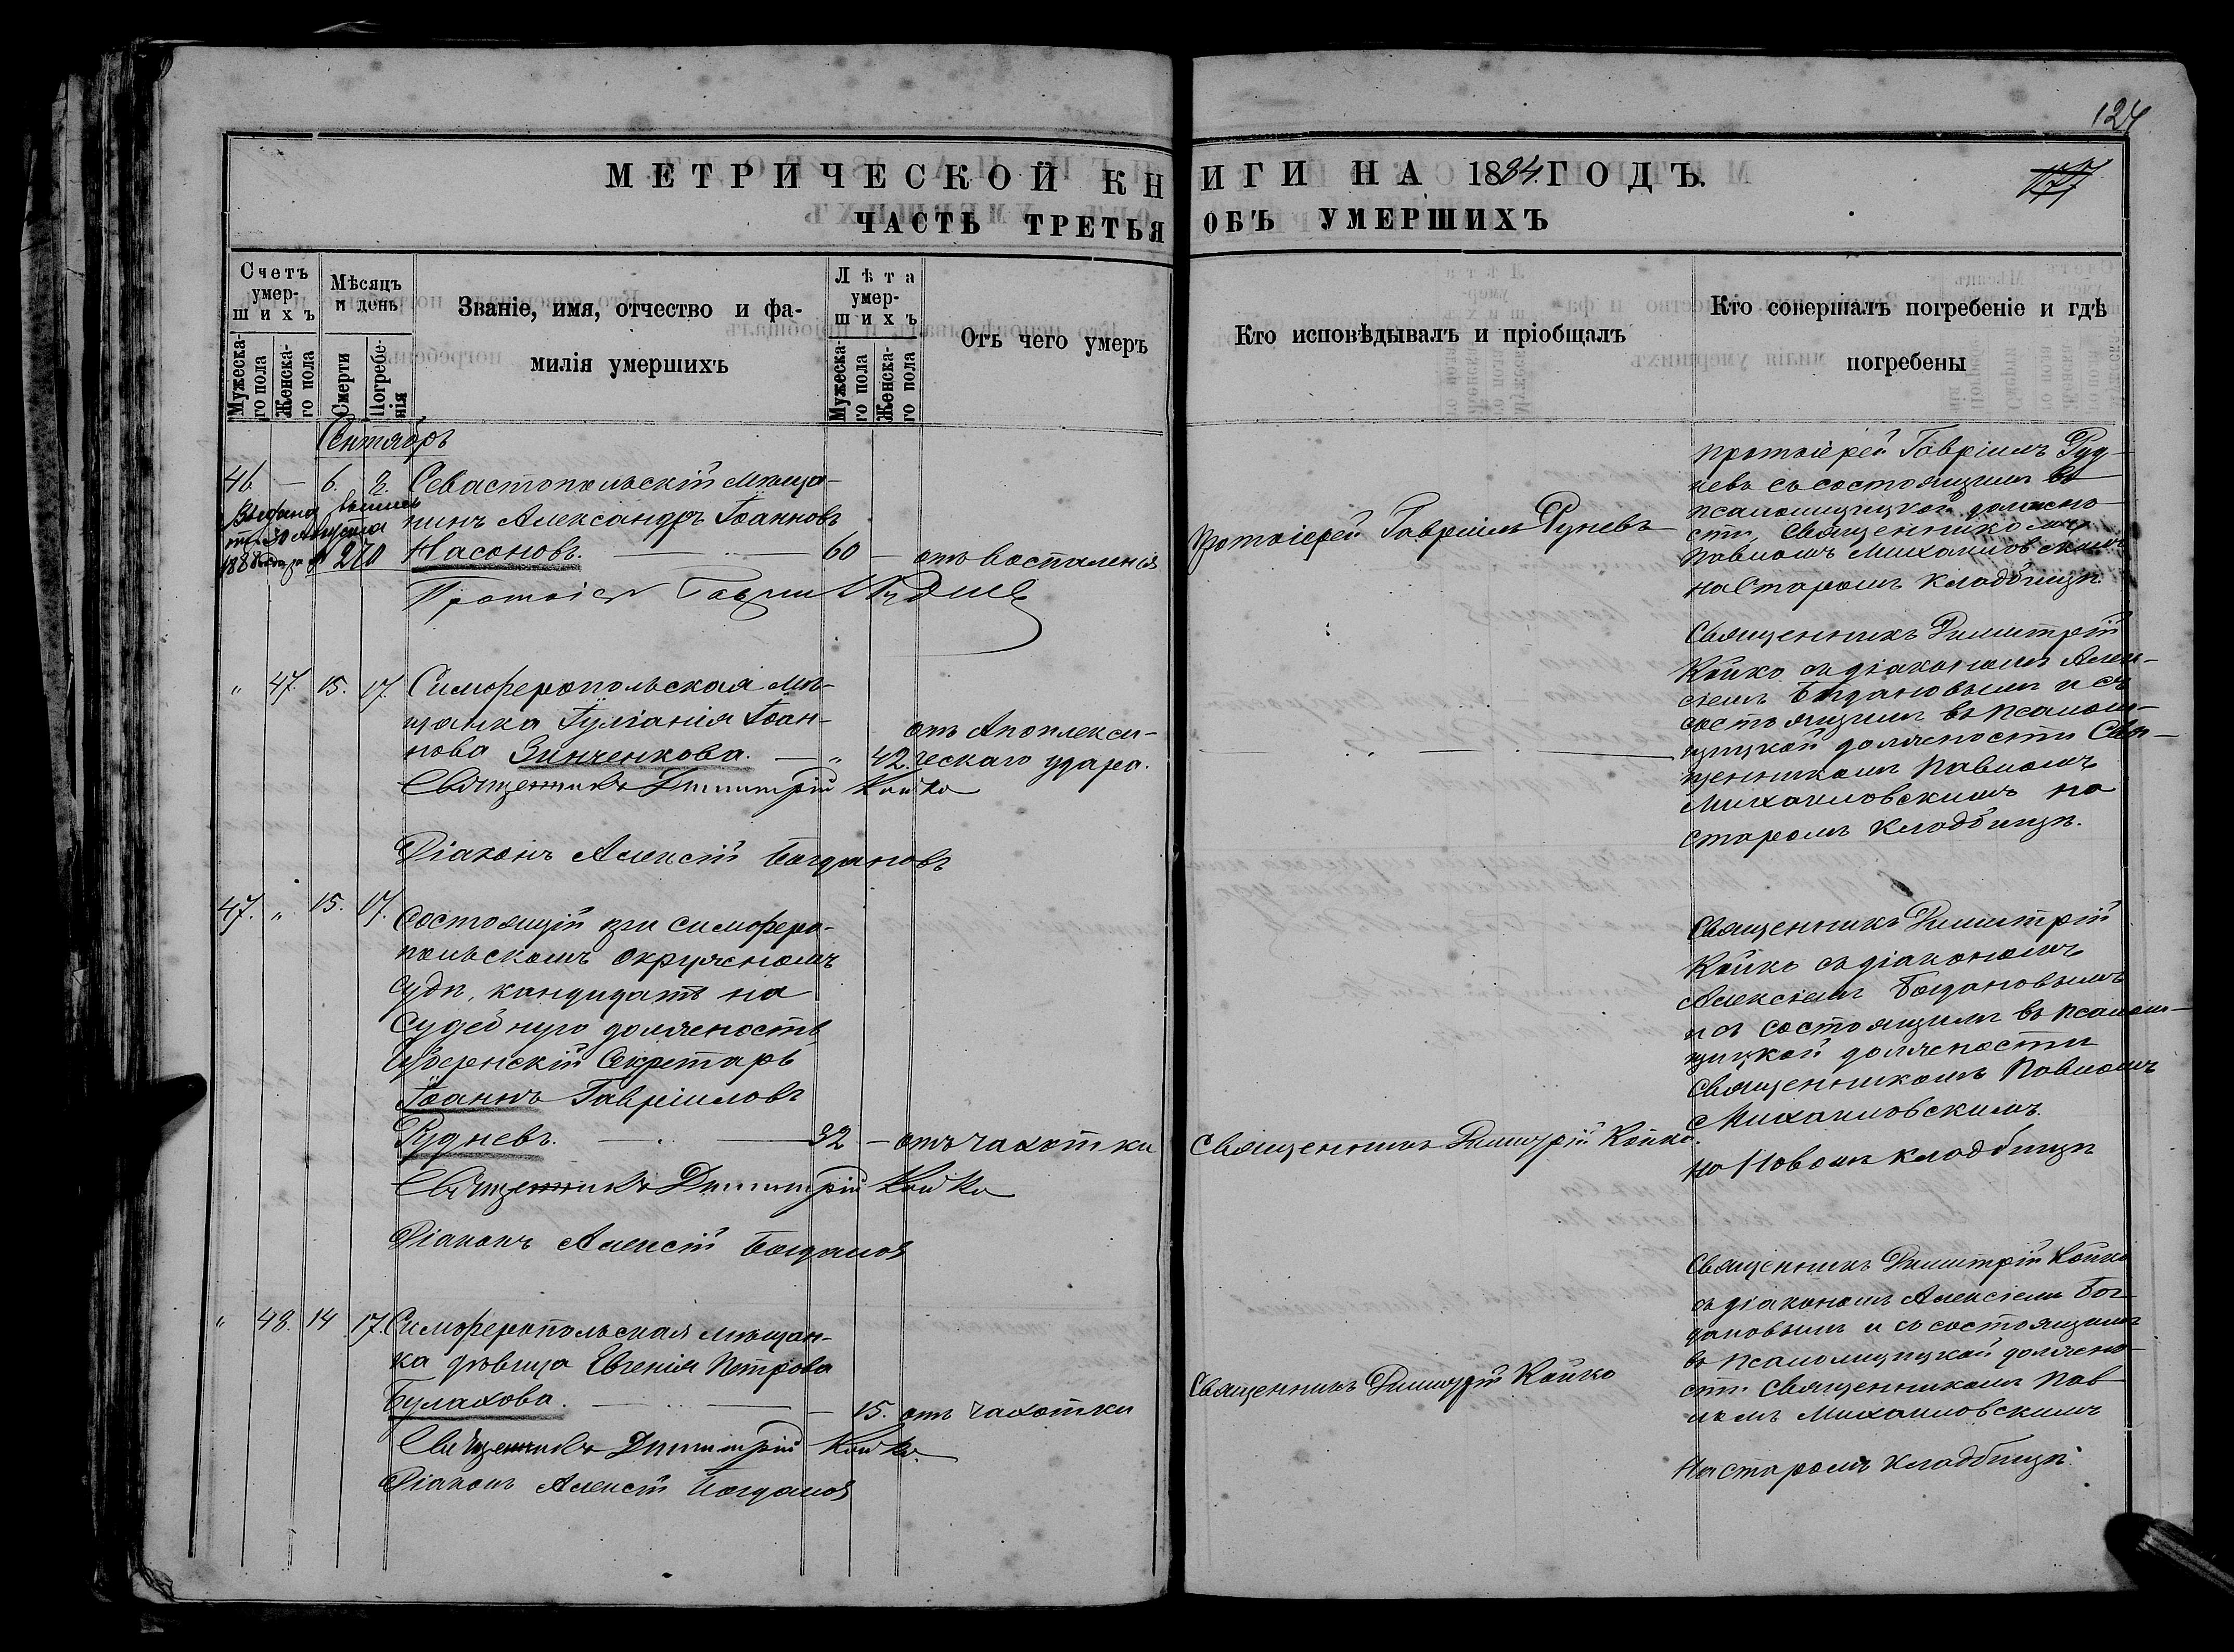 124
МЕТРИЧЕСКОЙ КНИГИ НА 1884 ГОДЪ.
ЧАСТЬ ТРЕТЬЯ ОБЪ УМЕРШИХЪ
Счетъ умер-
шихъ
Мужеска-
го пола
Женска-
го пола
Мѣсяцъ
и день
Смерти
Погребе-
нія
Званіе, имя, отчество и фа-
милія умершихъ
Лѣта
умер-
шихъ
Мужеска-
го пола
Женска-
го пола
Отъ чего умеръ
Кто исповѣдывалъ и пріобщалъ
Кто совершалъ погребеніе и гдѣ
погребены
Сентябрь
46. — 6. 8. Севастопольскій мѣща-
нинъ Александръ Іоанновъ
Насоновъ. — 60 — отъ воспаленія
Выдана выпись
30 Августа
188 № 270
Протоіерей Гавріилъ Рудневъ
Протоіерей Гавріилъ Рудневъ
протоіерей Гавріилъ Руд-
невъ съ состоящимъ въ
псаломщицкой должно-
сти, Священникомъ
Павломъ Михайловскимъ
на Старомъ кладбищѣ.
" 47. 15. 17. Симферопольская мѣ-
щанка Іуліанія Іоан-
нова Зинченкова. — " 42.
отъ Апоплекси-
ческаго удара.
Священникъ Димитрій Койко
Діаконъ Алексій Богдановъ
Священникъ Димитрій
Койко съ діакономъ Алек-
сіемъ Богдановымъ и съ
состоящимъ въ псалом-
щицкой должности Свя-
щенникомъ Павломъ
Михайловскимъ на
старомъ кладбищѣ.
47. " 15. 17. Состоящій при Симферо-
польскомъ Окружномъ
Судѣ, кандидатъ на
Судебную должность
Губернскій Секретарь
Іоаннъ Гавріиловъ
Рудневъ. — 32 — отъ чахотки
Священникъ Димитрій Койко
Діаконъ Алексій Богдановъ
Священникъ Димитрій Койко.
Священникъ Димитрій
Койко съ діакономъ
Алексіемъ Богдановымъ
и съ состоящимъ въ псалом-
щицкой должности
Священникомъ Павломъ
Михайловскимъ
на Новомъ кладбищѣ
" 48. 14 17. Симферопольская мѣщан-
ка дѣвица Евгенія Петрова
Булахова. — 15. отъ чахотки
Священникъ Димитрій Койко.
Діаконъ Алексій Богдановъ
Священникъ Димитрій Койко
Священникъ Димитрій Койко
съ діакономъ Алексіемъ Бог-
дановымъ и съ состоящимъ
въ псаломщицкой должно-
сти Священникомъ Пав-
ломъ Михайловскимъ
на старомъ кладбищѣ.